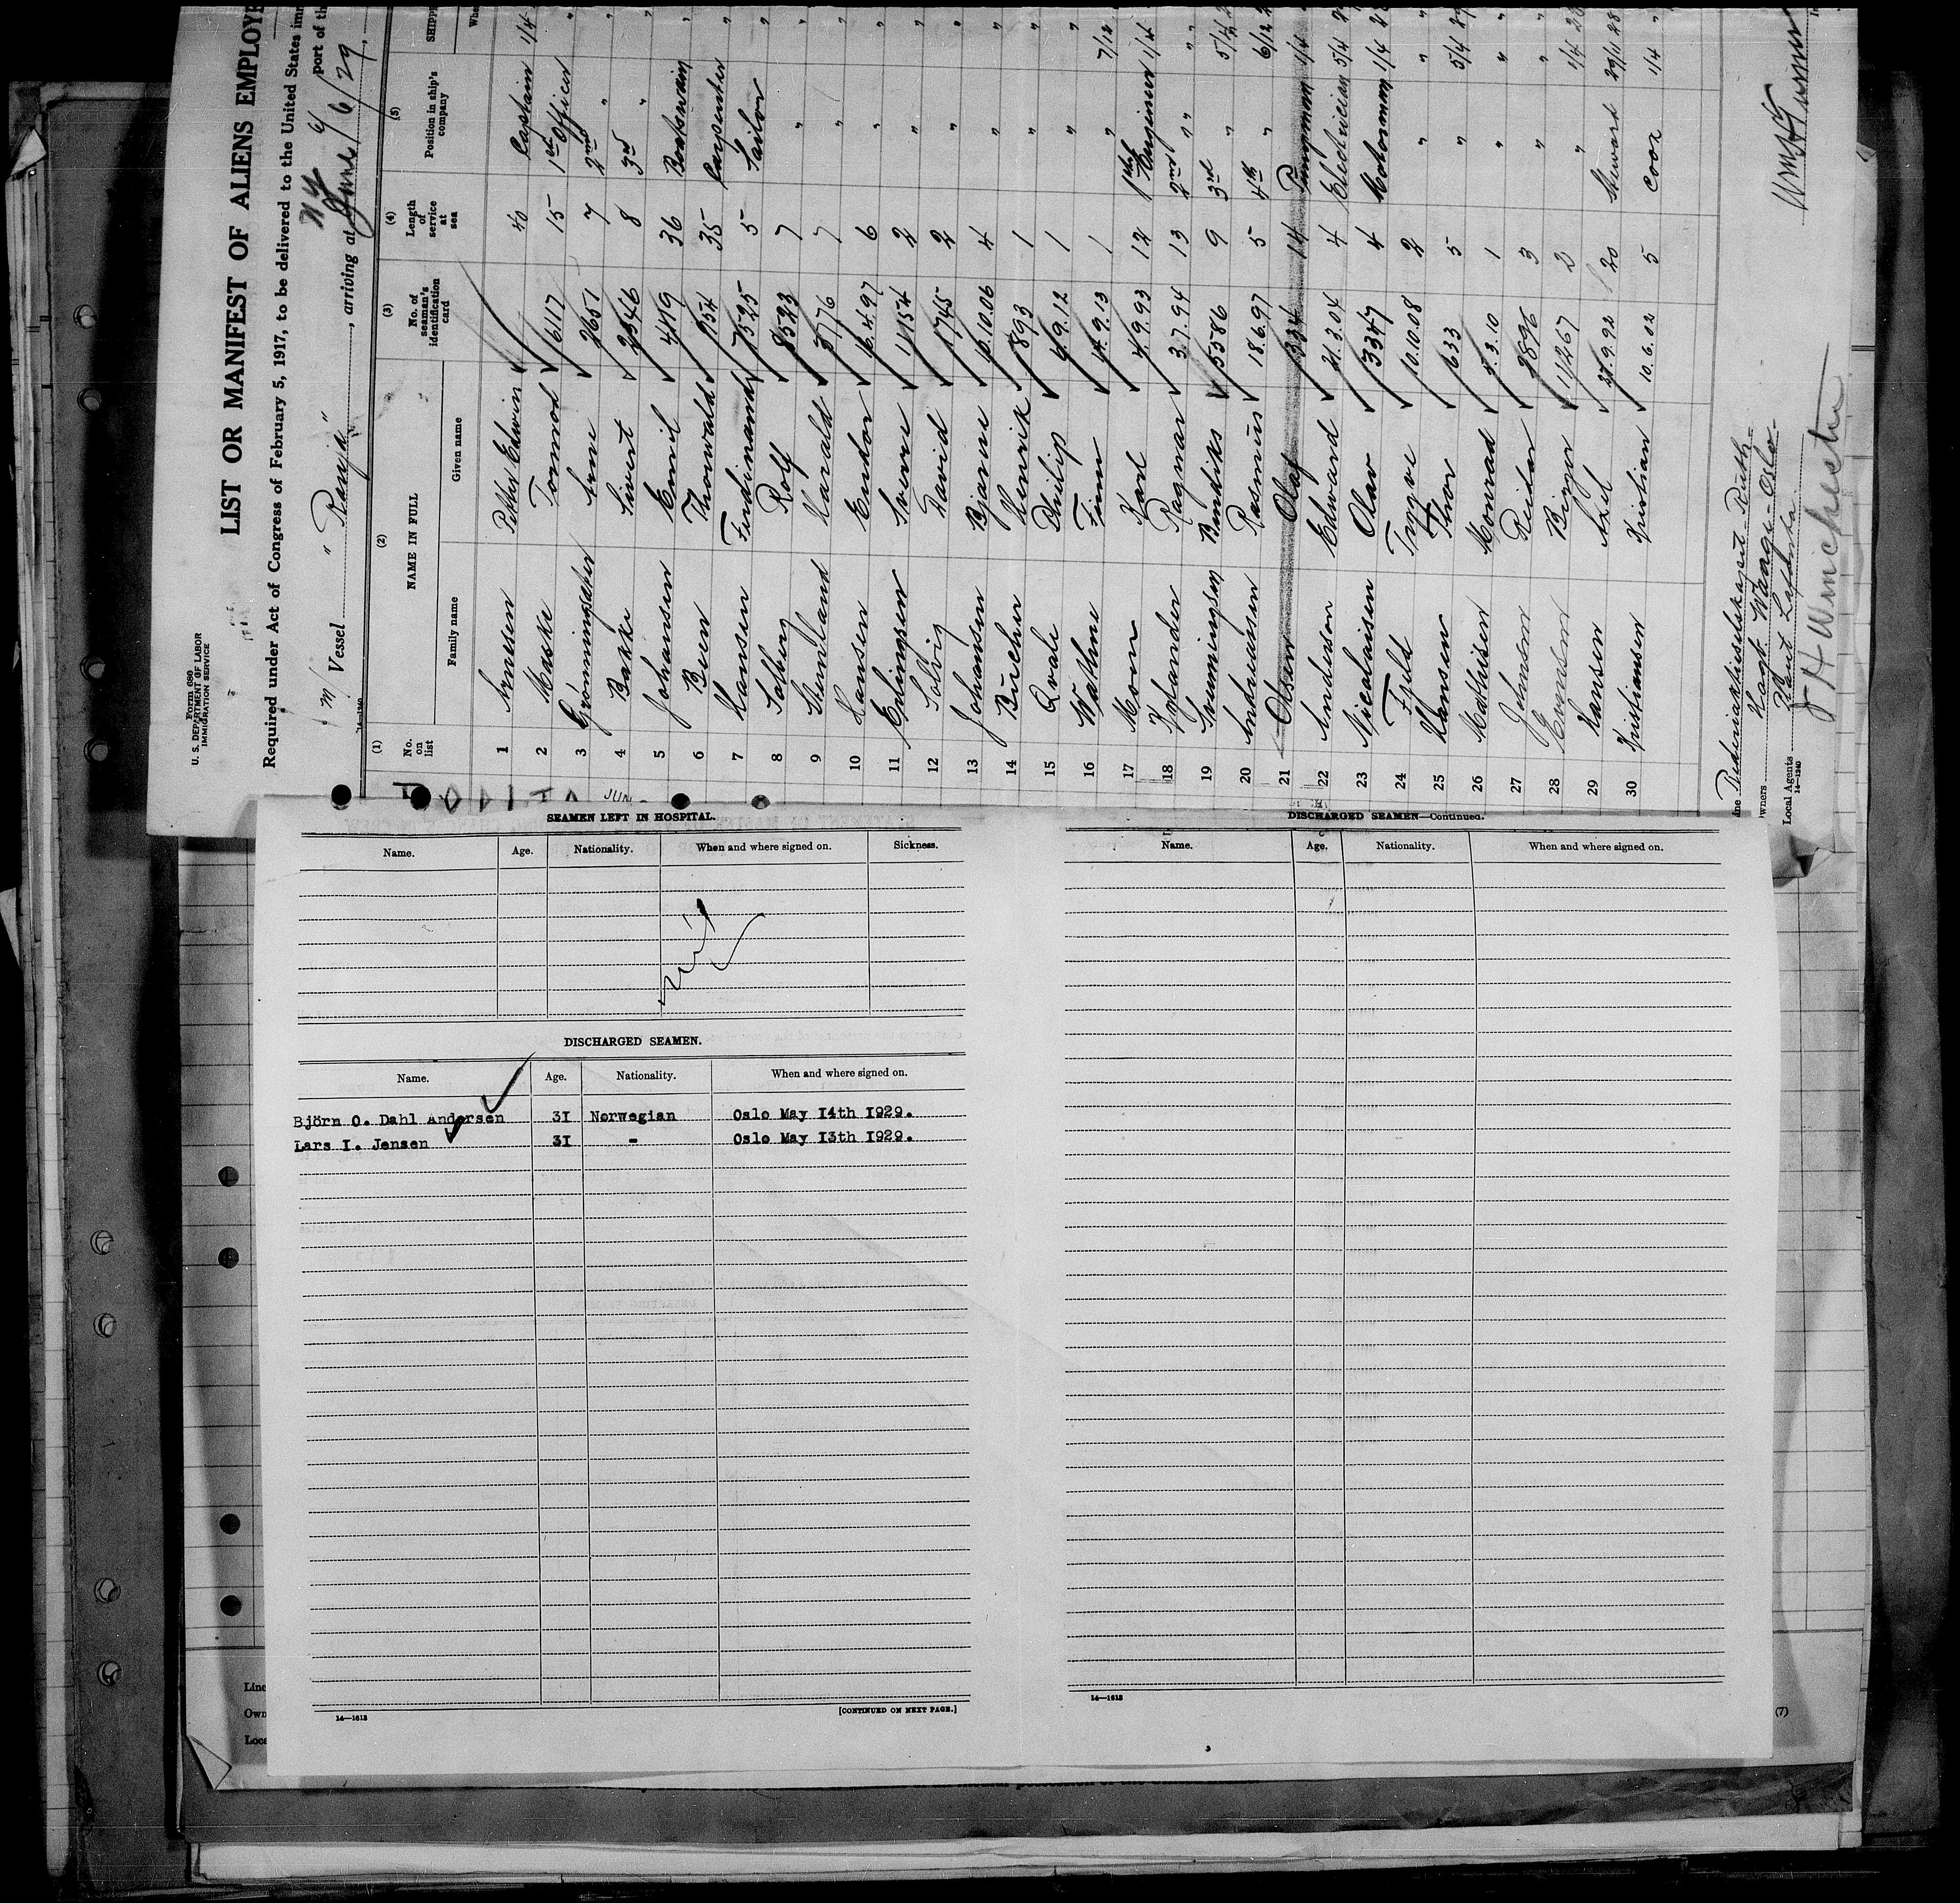 Form 680
U. S. DEPARTMENT OF LABOR
IMMIGRATION SERVICE
LIST OR MANIFEST OF ALIENS EMPLOYE
Required under Act of Congress of February 5, 1917, to be delivered to the United States imm
port of th
m/ Vessel " Ranja ", arriving at N Y June 6/29.
14-1240
(1) (2) (3) (4) (5)
No. on list NAME IN FULL No. of seaman's identification card Length of service at sea Position in ship's company SHIPPE
Family name Given name Whe
1 Arnesen Petter Edwin 40 Captain 1/4
2 Maske Tormod 6117 15 1st Officer "
3 Grömmingsæter Arne 2651 7 2nd " "
4 Bakke Sivert 2346 8 3rd " "
5 Johansen Emil 4419 36 Boatswain "
6 Buen Thorwald 7154 35 Carpenter "
7 Hansen Ferdinand 7525 5 Sailor "
8 Solberg Rolf 8523 7 " "
9 Stenland Harald 3776 7 " "
10 Hansen Eindor 16.4.97 6 " "
11 Erlingsen Sverre 11154 2 " "
12 Solvig David 1745 2 " "
13 Johansen Bjarne 10.10.06 4 " "
14 Bücher Henrik 893 1 " "
15 Qvale Philip 9.9.12 1 " "
16 Wathne Finn 14.9.13 1 " 7/12
17 Moen Karl 4.9.93 12 1st Engineer 1/4
18 Ragnar 3.7.94 13 2nd " "
19 Bendiks 5586 9 3rd " 5/4 2
20 Andreassen Rasmus 18.6.97 5 4th " 6/12 2
21 Olsen Olaf 334 14 Pumpman 1/4
22 Anderson Edward 21.3.04 4 Electrician 5/4 2
23 Nicolaisen Olav 3347 4 Motorman 1/4 28
24 Fjeld Trygve 10.10.08 2 " "
25 Hansen Thor 633 5 " 5/4 29
26 Mathisen Monrad 5.3.10 1 " "
27 Johnsen Reidar 2896 3 " "
28 Evensen Birger 11267 2 " 1/4 28
29 Hansen Axel 27.9.92 20 Steward 29/11 28
30 Kristiansen Kristian 10.6.02 5 Cook 1/4
ine Rederiaktieselskapet Ruth
wners Hagb. Waage - Oslo
Local Agents
14-1240
J H Winchester
JUN
SEAMEN LEFT IN HOSPITAL.
Name. Age. Nationality. When and where signed on. Sickness.
nil
DISCHARGED SEAMEN.
Name. Age. Nationality. When and where signed on.
Björn O. Dahl Andersen 3I Norwegian Oslo May I4th I929.
Lars I. Jensen 3I - Oslo May I3th I929.
14-1613
[CONTINUED ON NEXT PAGE.]
DISCHARGED SEAMEN—Continued.
Name. Age. Nationality. When and where signed on.
14-1613
Line
Own
Loca
(7)